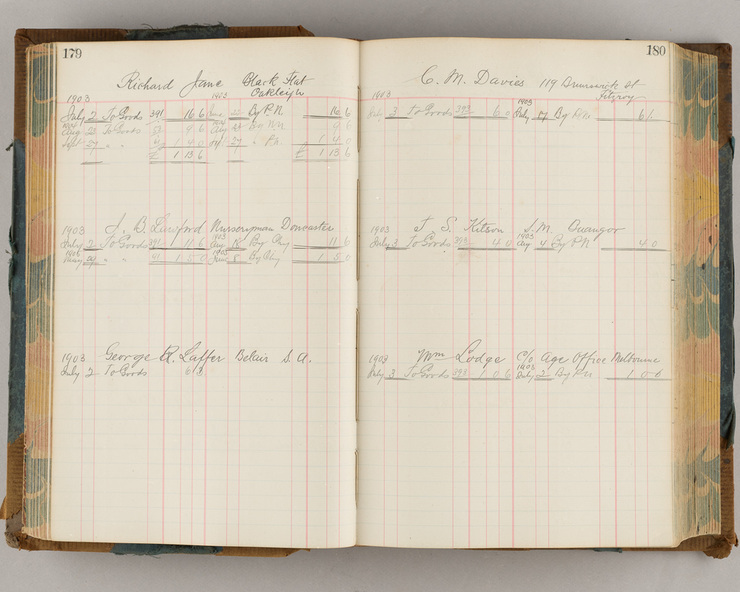 179
Richard Jane Black Flat
Oakleigh
1903 1903
July 2 To Goods 391 16 6 22 By P.N 16 6
Aug 22 To Goods 9 6 Aug 25 By P.N 9 6
Sept 27 " " 1 4 0 27 " P.N. 1 4 0
£ 1 13 6 £ 1 13 6
J. B. Lawford Nurseryman Doncaster
1903 1903
July 2 To Goods 391 11 6 Aug 18 By Chq 11 6
May " " 1 5 0 June 8 By Chq 1 5 0
1903 George R. Laffer Belair S.A.
July 2 To Goods 6 3
180
C. M. Davies 119 Brunswick St
Fitzroy
1903 1903
July 3 To Goods 393 6 July 17 By P.N 6
1903 J. S. Kitson S.M. Buangor
1903
July 3 To Goods 393 4 0 Aug 4 By P.N 4 0
1903 Wm Lodge C/o Age Office Melbourne
1903
July 3 To Goods 393 1 0 6 July 2 By P.N 1 0 6